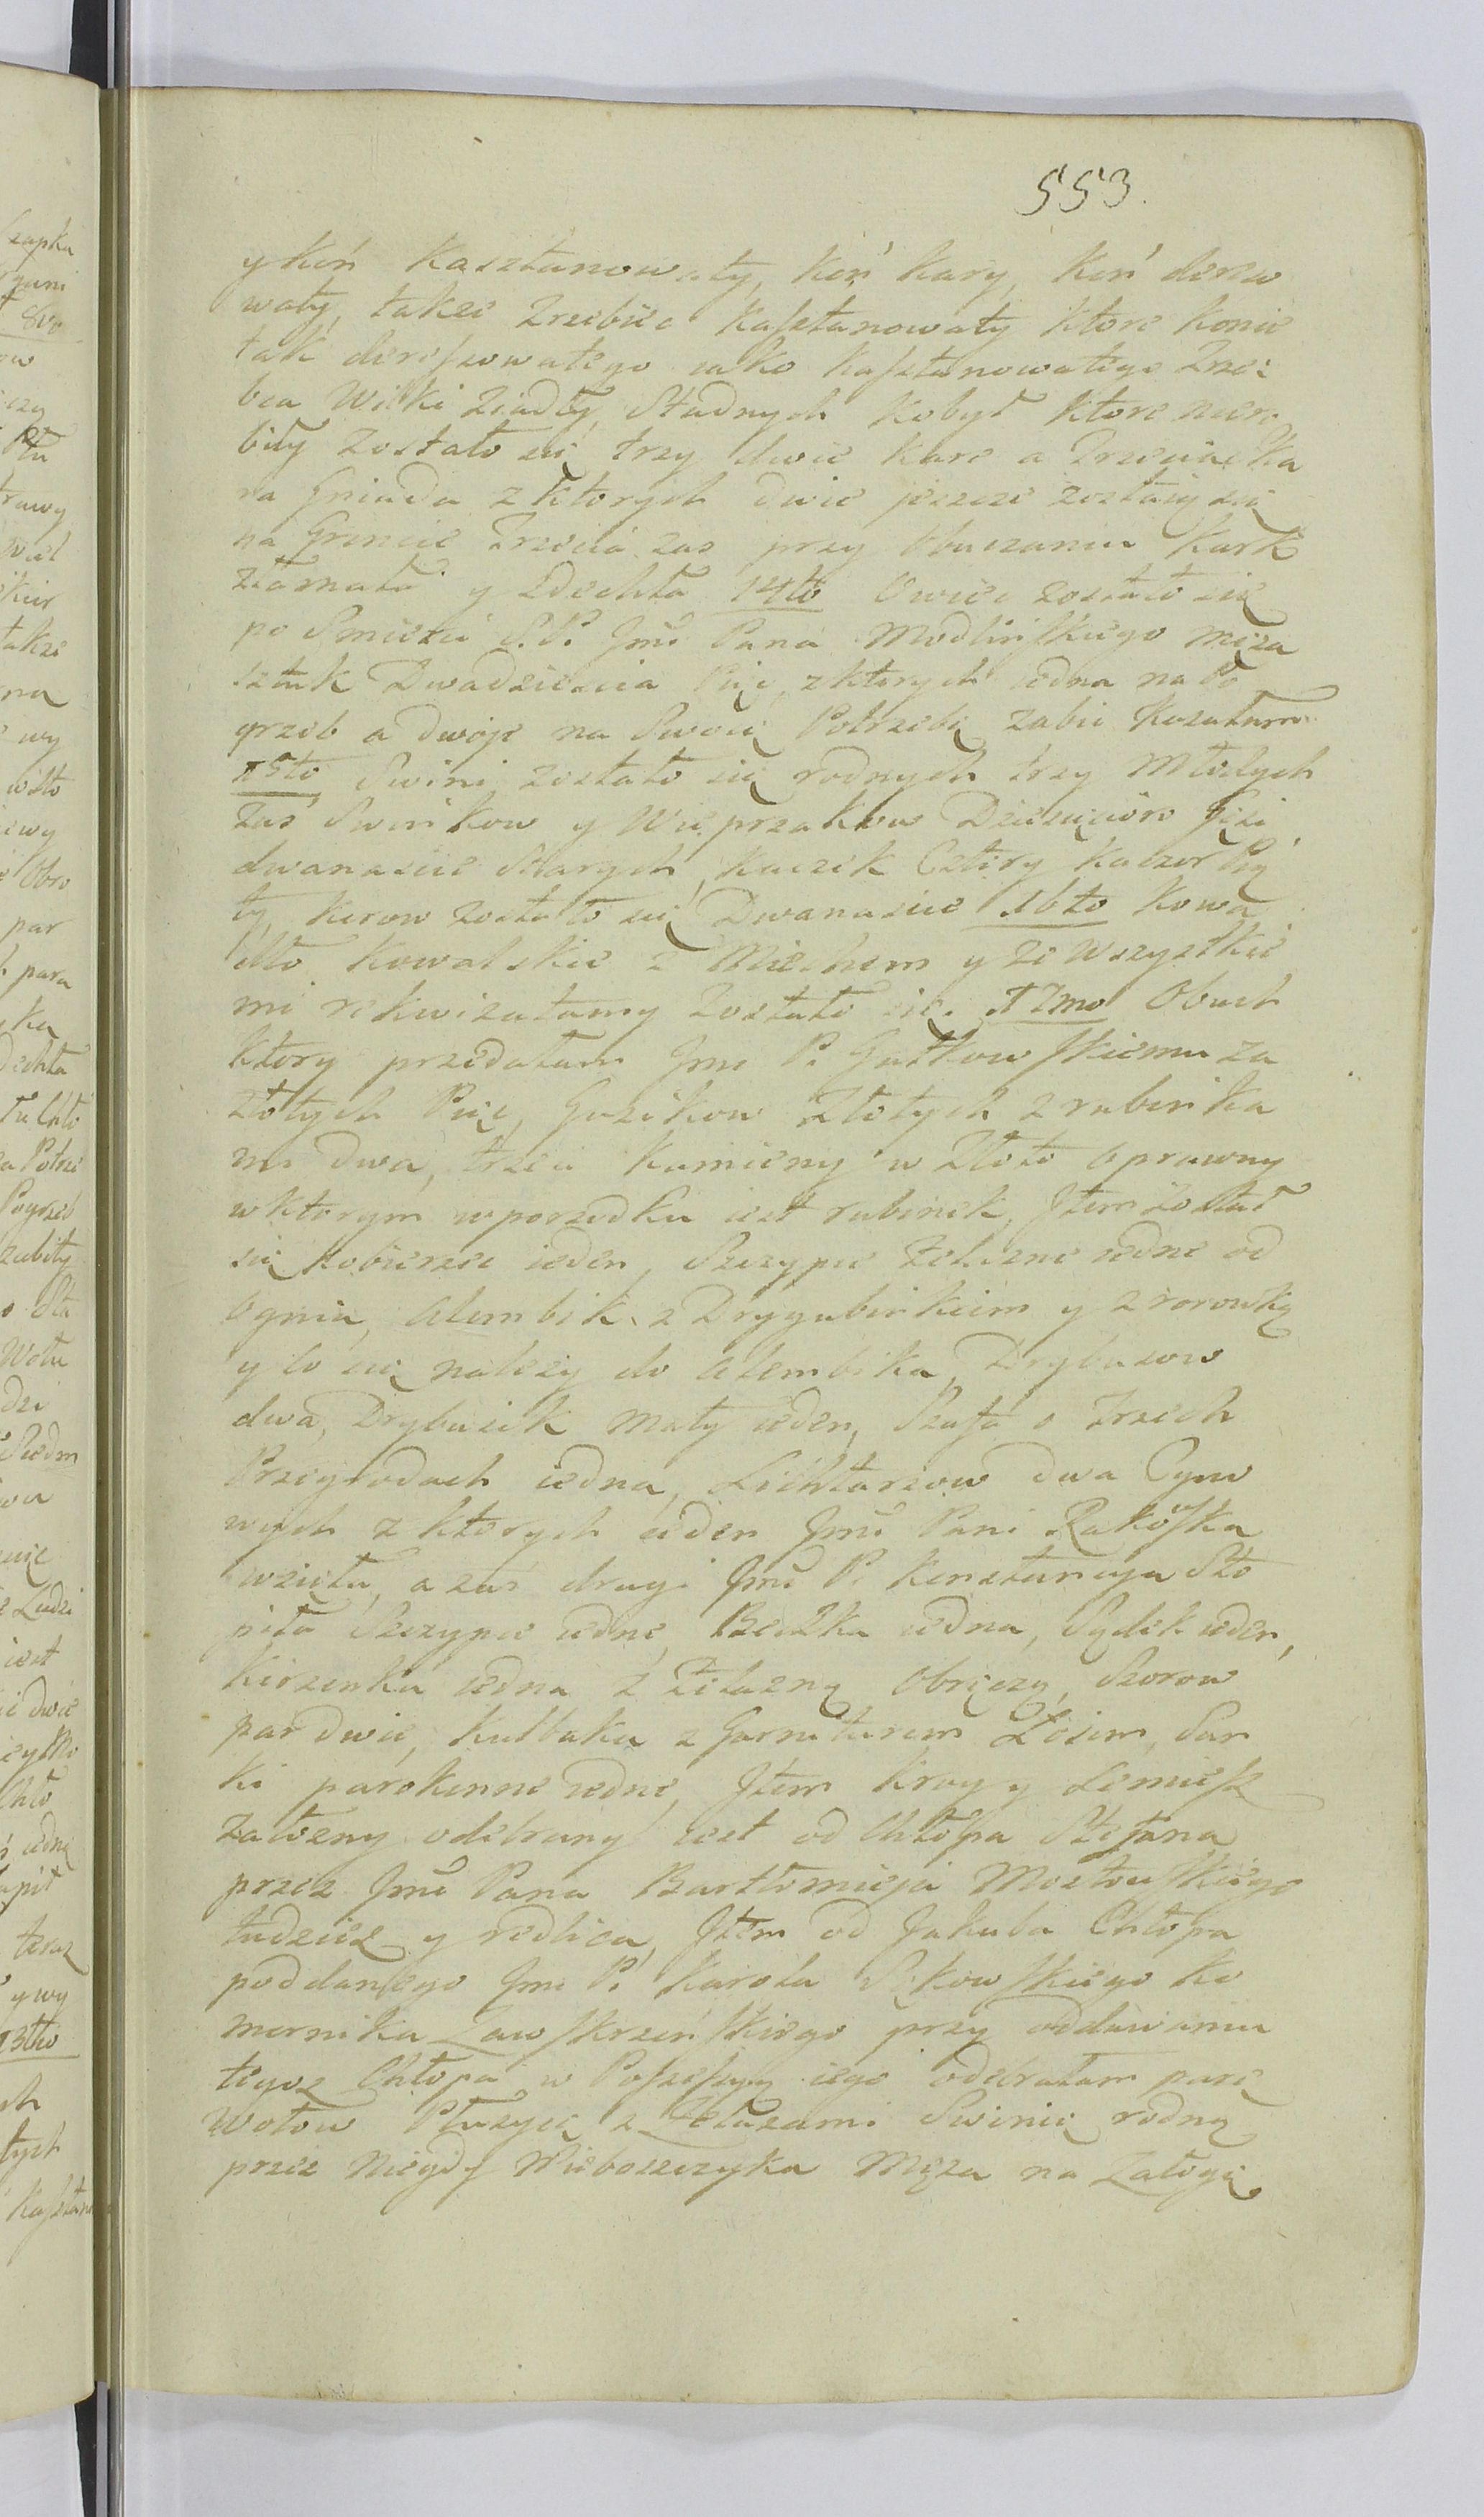 553.
y koń Kasztanowaty, koń kary, koń deresz
waty, także Zrzebiec Kasztanowaty ktore konie
tak dereszowatego iako kasztanowatego Zrze:
bca Wilki Ziadły, Stadnych Kobył ktore nierο
biły zostało się trzy dwie kare a Trzecia
na Gniada z ktorych dwie jeszcze zostaią się
na Gruncie Trzecia zas przy Kark
złamała y Zdechła 14to Owiec zostało się
po Smierci S. P. Jmć Pana Modlińskiego męza
sztuk Dwadziescia Pięć, z ktorych iedna na Po
grzeb a dwoje na Swoię Potrzebę zabić kazałam
15to Swini zostało się rodnych trzy Młodych
Zas Swinkow y Wieprzakow Dziesięcioro Gęsi
dwanascie Starych, Kaczek Cztery Kaczor Pią
ty, Kurow zostało się Dwanascie 16to Kowa
dło Kowalskie z Miechem y ze wszystkie
mi rekwizatamy zostało się. 17mo Obuch
ktory przedałam Jmć P. Gutkowskiemu za
złotych Pięć, Guzikow Złotych z rubinka
mi dwa, trzeci kamieny w Złoto oprawny
w ktorym wporzodku iest rubinek, Item został
się kobierzec ieden, Szczypce Zelazne iedne od
Ognia, Alembik z Drygubinkiem y z rorowką
y co się nalezy do Alembika, Drybusow
dwa, Drybusik mały ieden, Szafa o Trzech
Przegrodach iedna, Lichtarzow dwa Cyno
wych z ktorych ieden Jmć Pani Rakoska
wzięła, a zas drugi Jmć P. Konstancya Sto
piła Szczypce iedne, Beczka iedna, Sądek ieden,
Kierzenka iedna z Zelazną Obręczą Szorow
par dwie, Kulbaka z Garniturem Łosim, San
ki parokonne iedne, Item kroy y Lemiesz
Zalozny odebrany iest od Chłopa Stefana
przez Jmć Pana Bartłomieja Mostowskiego
tudziesz y redlica, Item od Jakuba Chłopa
poddanego Jmć P. Karola Sękowskiego Ko
mornika Zawskrzeńskiego przy oddawaniu
tegoz Chłopa w Possessyą iego odebrałam parę
Wołow Płuzycę z Zelazami Swinię rodną
przez Niegdy Nieboszczyka Męza na Załogę